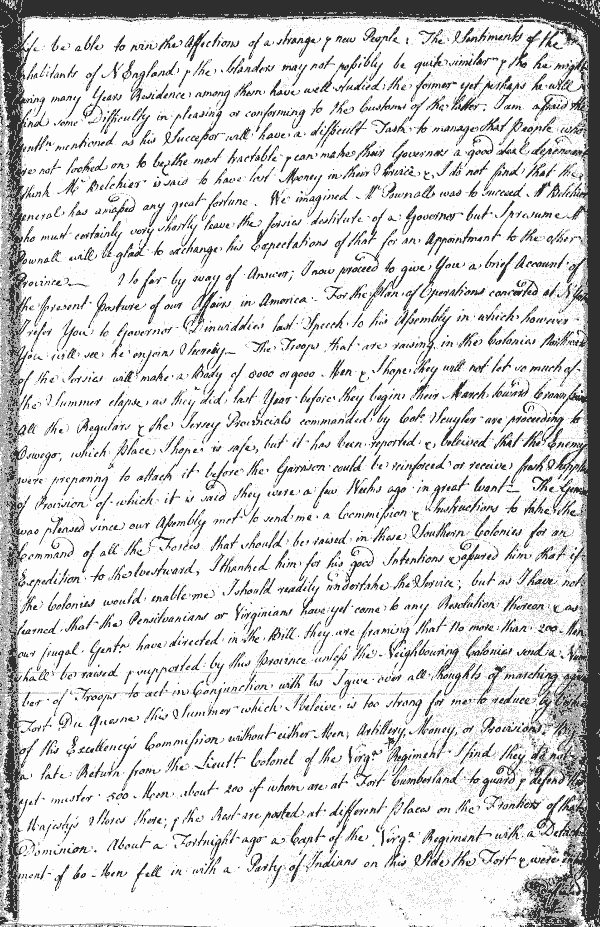 life be able to win the Affections of a strange & new People: The Sentiments of the
Inhabitants of N England & the Islanders may not possibly be quite similar & tho he might
during many Years Residence among them have well studied the former yet perhaps he will
find some Difficulty in pleasing or conforming to the Customs of the latter. I am afraid the
Gentln mentioned as his Successor will have a difficult Task to manage that People who
are not looked on to be the most tractable & can make their Governors a good deal dependant
I think Mr Belchier is said to have lost Money in their Service & I do not find that the
General has amassed any great fortune. We imagined Mr Pownall was to succeed Mr Belchier
who must certainly very shortly leave the Jersies destitute of a Governor but I presume Mr
Pownall will be glad to exchange his Expectations of that for an Appointment to the other
Province— So far by way of Answer; I now proceed to give You a brief Account of
the present Posture of our Affairs in America. For the Plan of Operations concerted at N York
I refer You to Governor Dinwiddies last Speech to his Assembly in which however
You will see he enjoins Secresy— The Troops that are raising in the Colonies Northward
of the Jersies will make a Body of 8000 or 9000 Men & I hope they will not let so much of
the Summer elapse as they did last Year before they begin their March toward Crown point
All the Regulars & the Jersey Provincials commanded by Colo Scuyler are proceeding to
Oswego, which Place I hope is safe, but it has been reported & beleived that the Enemy
were preparing to attack it before the Garrison could be reinforced or receive fresh Supplies
of Provision of which it is said they were a few Weeks ago in great want— The General
was pleased since our Assembly met to send me a Commission & Instructions to take the
Command of all the Forces that should be raised in these Southern Colonies for an
Expedition to the Westward, I thanked him for his good Intentions & assured him that if
the Colonies would enable me I should readily undertake the Service; but as I have not
learned that the Pensilvanians or Virginians have yet come to any Resolution thereon & as
our frugal Gentn have directed in the Bill they are framing that no more than 200 Men
shall be raised & supported by this Province unless the Neighbouring Colonies send a Num
ber of Troops to act in Conjunction with us I give over all thoughts of marching against
Fort Du Quesne this Summer which I beleive is too strong for me to reduce by Virtue
of his Excellency's Commission without either Men, Artillery, Money, or Provisions. By
a late Return from the Lieutt Colonel of the Virga Regiment I find they do not
yet muster 500 Men about 200 of whom are at Fort Cumberland to guard & defend his
Majestys Stores there; & the Rest are posted at different Places on the Frontiers of that
Dominion. About a Fortnight ago a Capt of the Virga Regiment with a Detach
ment of 60 Men fell in with a Party of Indians on this Side the Fort & were